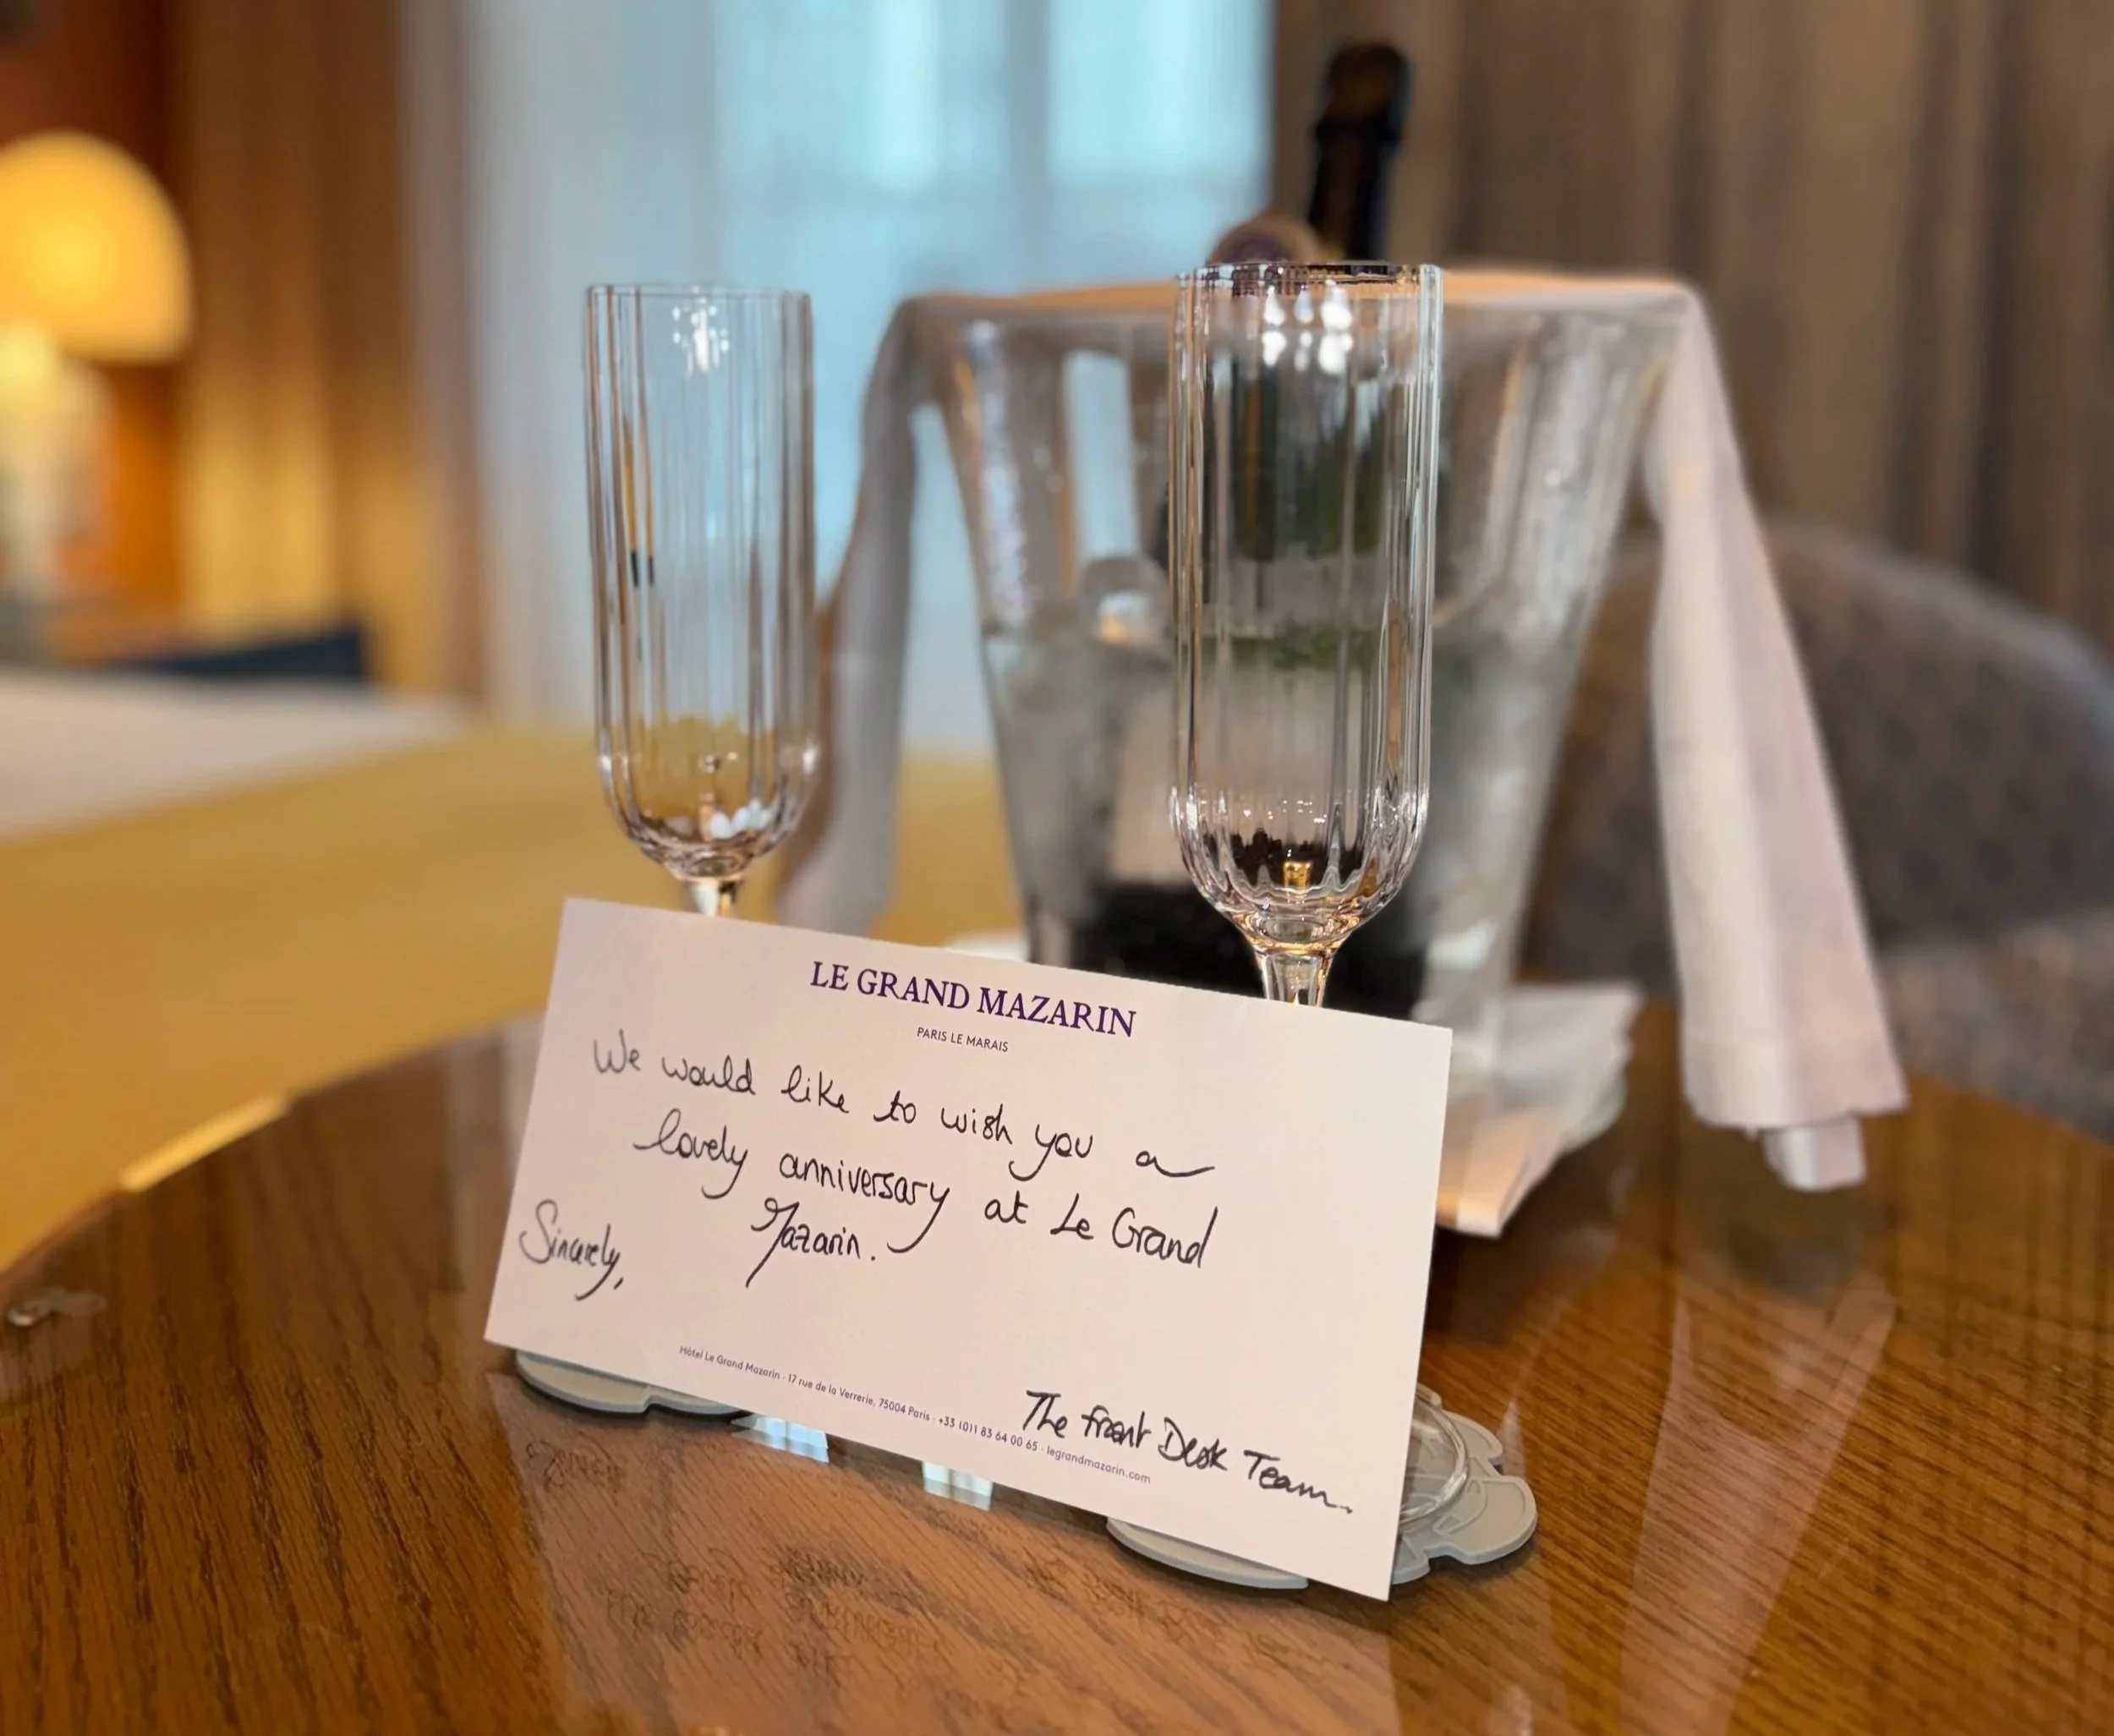 LE GRAND MAZARIN
PARIS LE MARAIS
We would like to wish you a
lovely anniversary at Le Grand
Mazarin.
Sincerely,
The Front Desk Team.
Hôtel Le Grand Mazarin · 17 rue de la Verrerie, 75004 Paris · +33 (0)1 83 64 00 65 · legrandmazarin.com